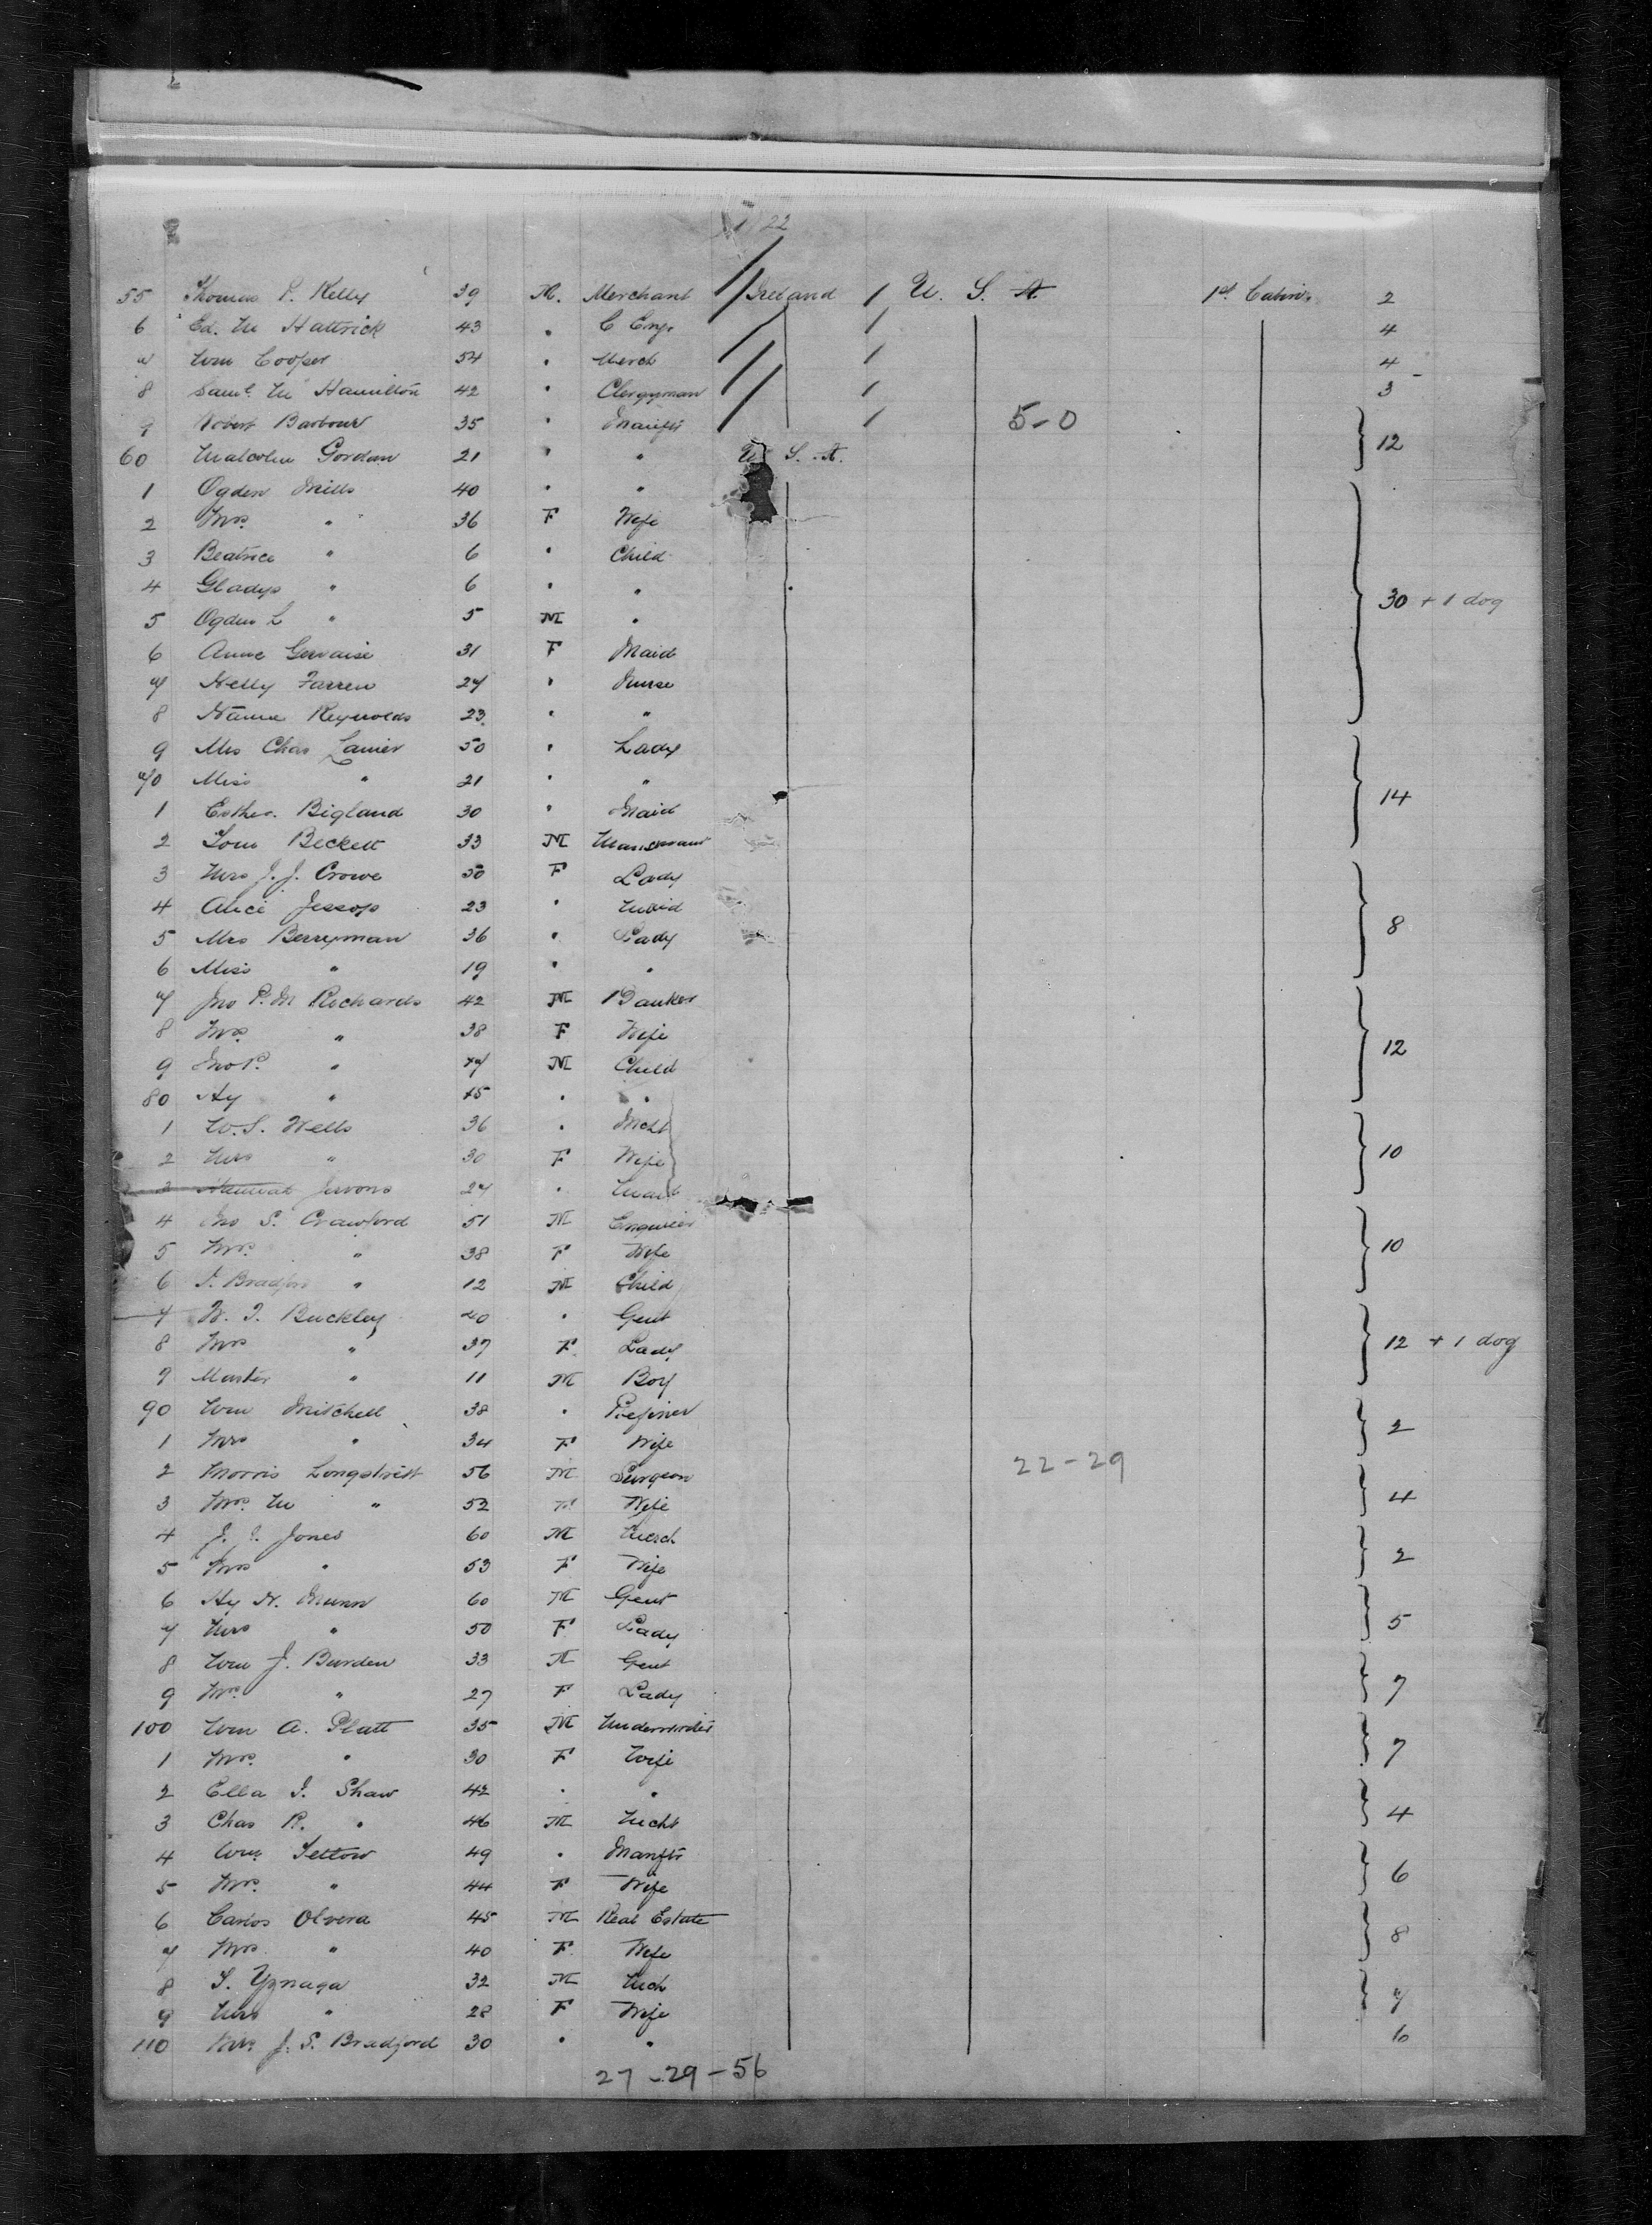 1 22
55 Thomas P. Kelly 39 M. Merchant Ireland 1 U. S. A 1st Cabin 2
6 Ed. M Hattrick 43 " C Engr 1 4
7 Wm Cooper 54 " Merch 1 4
8 Saml. M Hamilton 42 " Clergyman 1 3
9 Robert Barbour 35 " Manuftr 1 5-0
60 Malcolm Gordon 21 " " U. S. A. 12
1 Ogden Mills 40 " "
2 Mrs. " 36 F Wife
3 Beatrice " 6 " Child
4 Gladys " 6 " "
5 Ogden L " 5 M " 30 + 1 dog
6 Anne Gervaise 31 F Maid
7 Nelly Farren 27 " Nurse
8 Reynolds 23 " "
9 Mrs Chas Lanier 50 " Lady
70 Miss " 21 " "
1 Esther Bigland 30 " Maid 14
2 Tom Beckett 33 M Manservant
3 Mrs J. J. Crowe 50 F Lady
4 Alice Jessop 23 " Maid
5 Mrs Berryman 36 " Lady 8
6 Miss " 19 " "
7 Jno P. M Richards 42 M Banker
8 Mrs. " 38 F Wife
9 Jno P. " 7 M Child 12
80 Hy " 5 " "
1 W. S. Wells 36 " Mcht
2 Mrs " 30 F Wife 10
3 Jevons 27 " Maid
4 Jno S. Crawford 51 M Engineer
5 Mrs. " 38 F Wife 10
6 " 12 M Child
7 W. T. Buckley 40 " Gent
8 Mrs " 37 F Lady 12 + 1 dog
9 Master " 11 M Boy
90 Wm Mitchell 38 " Refiner
1 Mrs " 34 F Wife 2
2 Morris Longstreth 56 M Surgeon 22-29
3 Mrs. M " 52 F Wife 4
4 Jones 60 M Merch
5 Mrs " 53 F Wife 2
6 Hy N. Munn 60 M Gent
7 Mrs " 50 F Lady 5
8 Wm J. Burden 33 M Gent
9 Mrs " 27 F Lady 7
100 Wm A. Platt 35 M Underwriter
1 Mrs. " 30 F Wife 7
2 Ella J. Shaw 42 " "
3 Chas R. " 46 M Mcht 4
4 Wm Tettow 49 " Manftr
5 Mrs. " 44 F Wife 6
6 Carlos Olvera 45 M Real Estate
7 Mrs " 40 F Wife 8
8 Yznaga 32 M Mch
9 Mrs " 28 F Wife 7
110 Mrs J. S. Bradford 30 " " 6
27-29-56